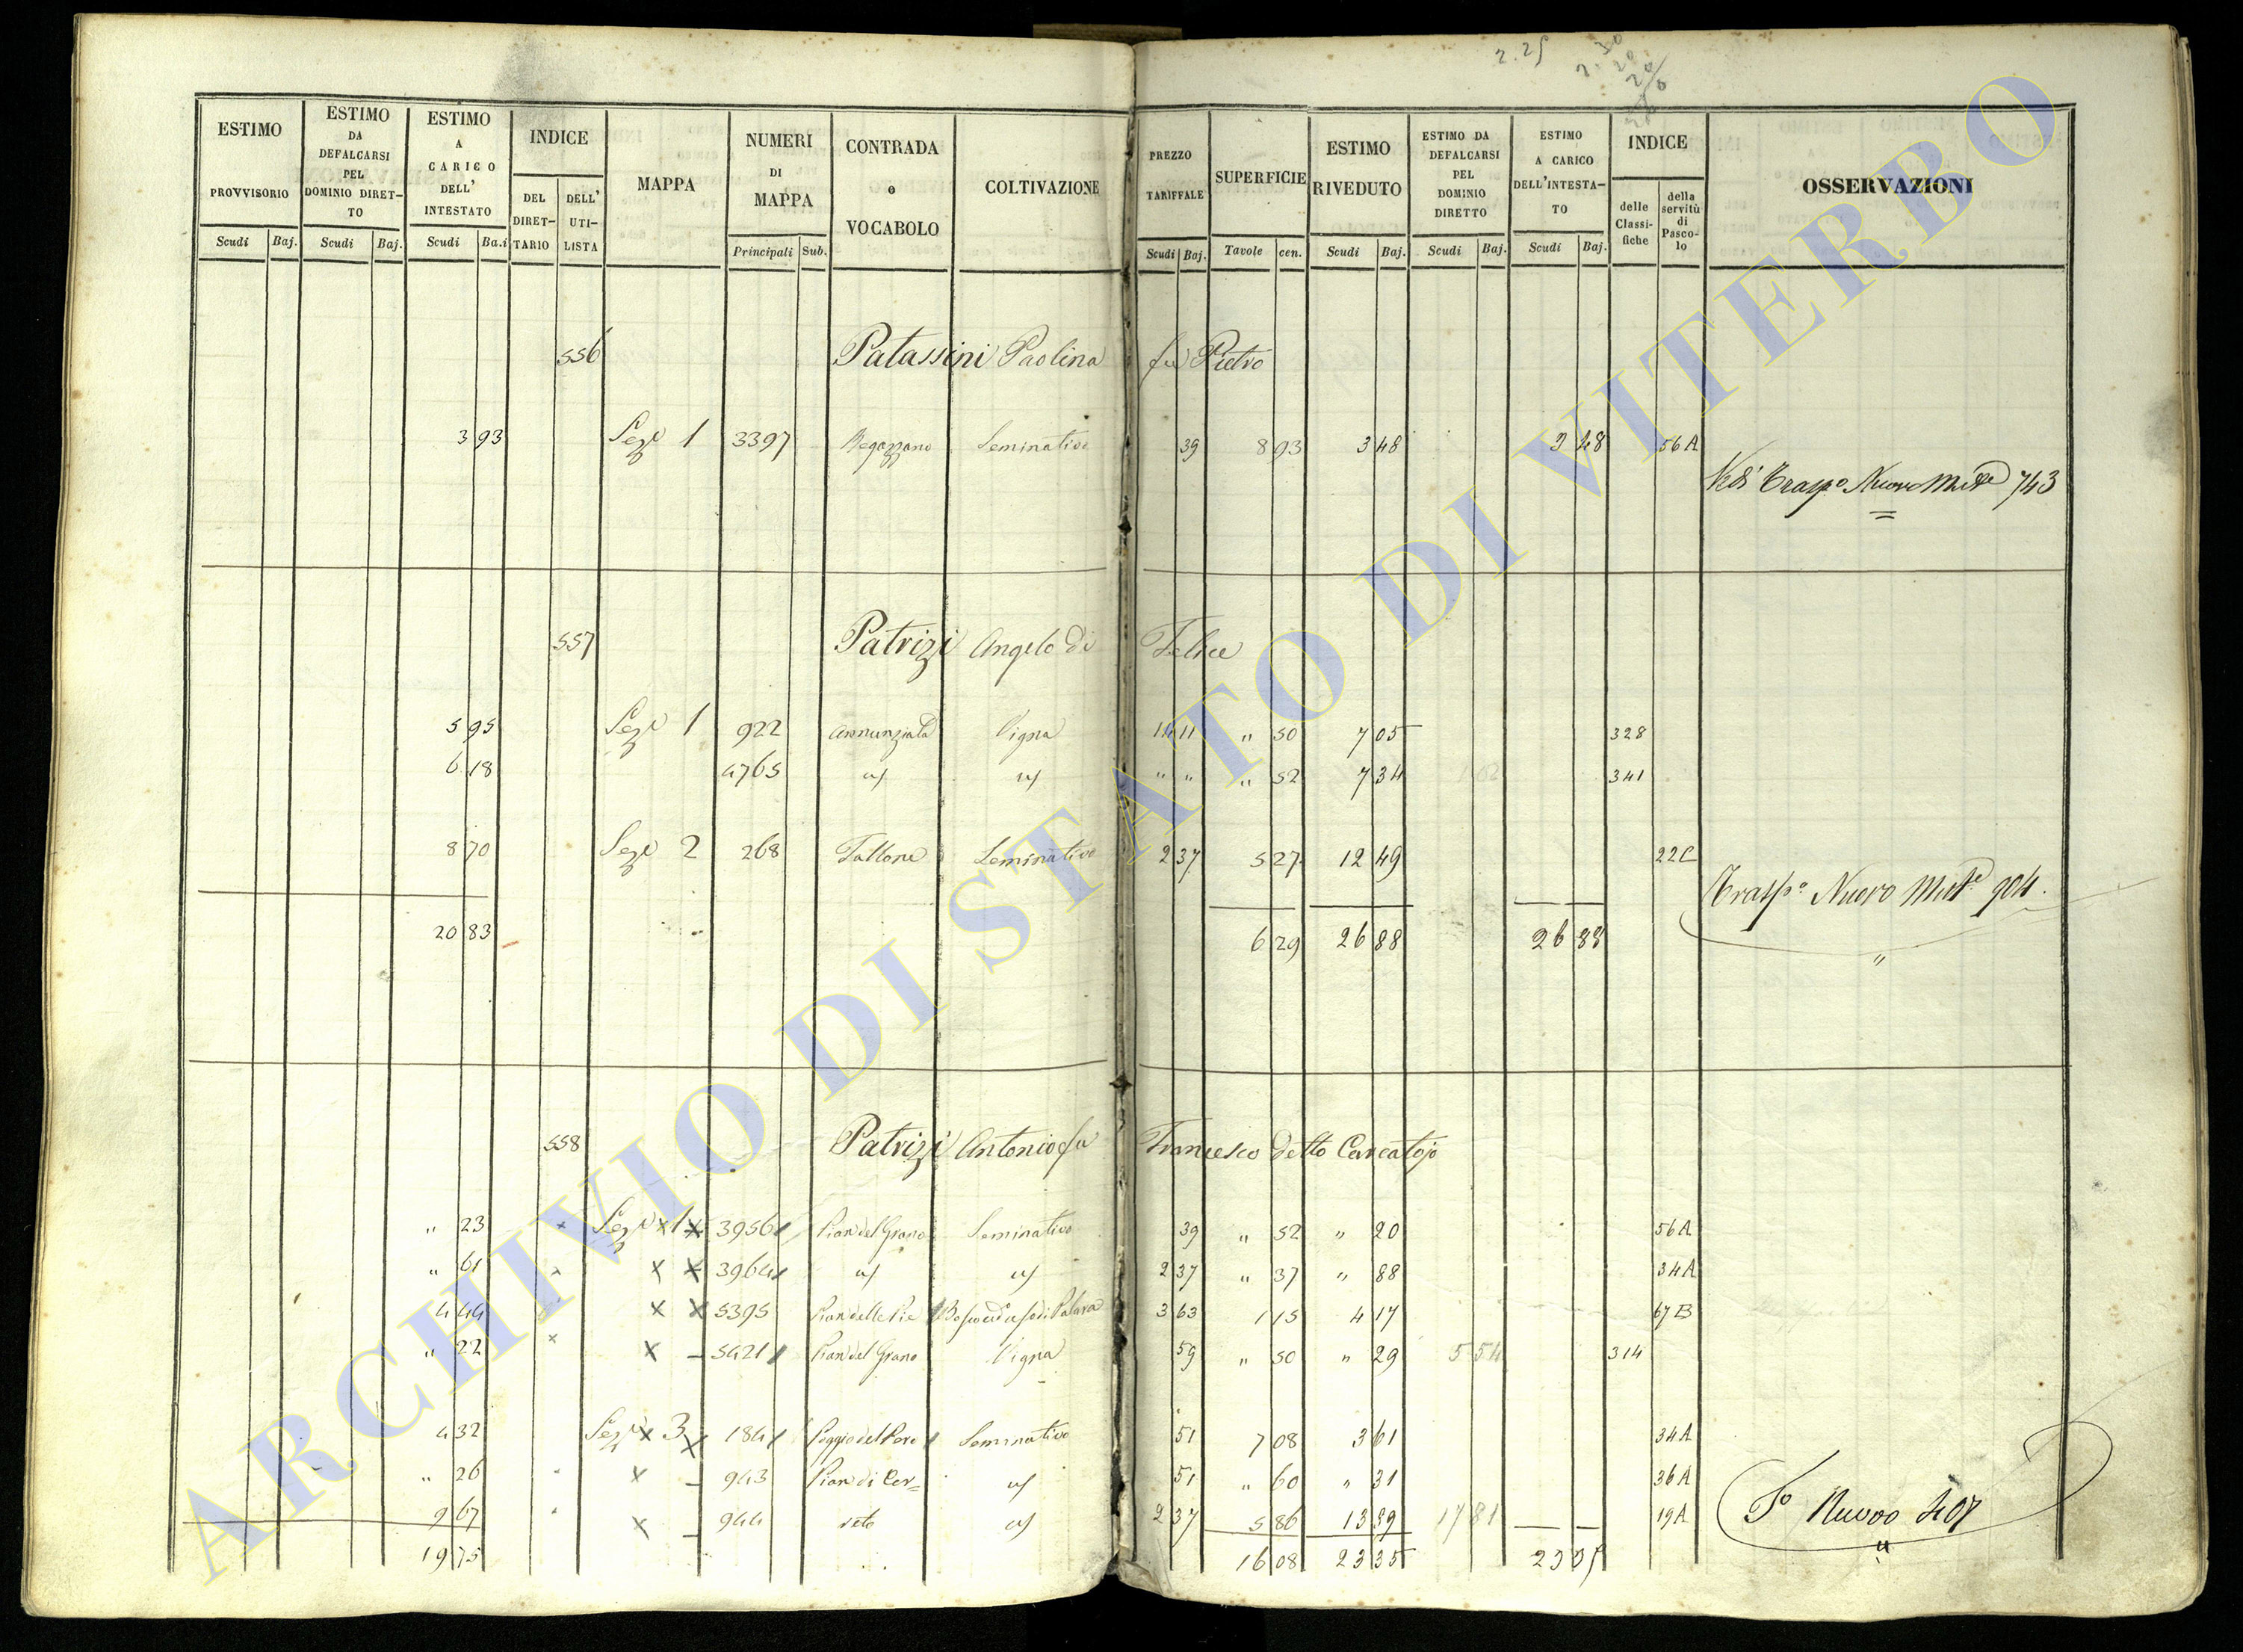 2.25
ESTIMO PROVVISORIO Scudi Baj.
ESTIMO DA DEFALCARSI PEL DOMINIO DIRETTO Scudi Baj.
ESTIMO A CARICO DELL' INTESTATO Scudi Ba.i
INDICE DEL DIRETTARIO DELL' UTILISTA
MAPPA
NUMERI DI MAPPA Principali Sub.
CONTRADA o VOCABOLO
COLTIVAZIONE
PREZZO TARIFFALE Scudi Baj.
SUPERFICIE Tavole cen.
ESTIMO RIVEDUTO Scudi Baj.
ESTIMO DA DEFALCARSI PEL DOMINIO DIRETTO Scudi Baj.
ESTIMO A CARICO DELL'INTESTATO Scudi Baj.
INDICE delle Classifiche della servitù di Pascolo
OSSERVAZIONI
556 Patassini Paolina fu Pietro
3 93 Seze 1 3397 Regazzano Seminativo 39 8 93 3 48 3 48 56 A
Vedi Traspo Nuovo Mtte 743
557 Patrizi Angelo di Felice
5 95 Seze 1 922 Annunziata Vigna 14 11 " 50 7 05 328
6 18 4765 " 52 7 34 341
8 70 Seze 2 268 Tallone Seminativo 2 37 5 27 12 49 22 C
Traspo Nuovo Mtte 904.
20 83 6 29 26 88 26 88
558 Patrizi Antonio fu Francesco detto Carcatojo
" 23 Seze 1 3956 Pian del Grano Seminativo 39 " 52 " 20 56 A
" 61 3964 2 37 " 37 " 88 34 A
4 44 5395 Pian delle Pie 3 63 1 15 4 17 67 B
" 22 5421 Pian del Grano Vigna 59 " 50 " 29 5 54 314
4 32 Seze 3 184 Poggio del Pero Seminativo 51 7 08 3 61 34 A
" 26 943 Pian di Cer= 51 " 60 " 31 36 A
9 67 944 reto 2 37 5 86 13 89 17 81 19 A
To Nuovo 407
19 75 16 08 23 35 23 35
ARCHIVIO DI STATO DI VITERBO